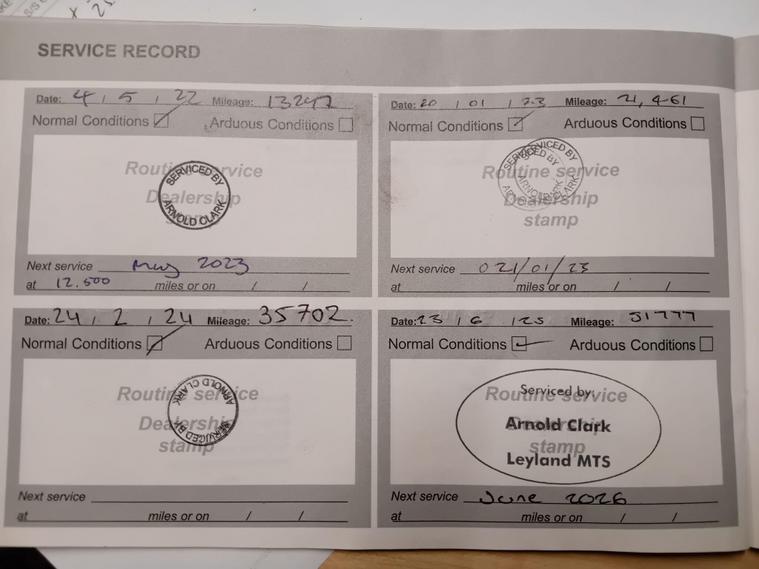 SERVICE RECORD
Date: 4 , 5 , 22 Mileage: 13247
Normal Conditions Arduous Conditions
Routine service
Dealership
stamp
SERVICED BY
ARNOLD CLARK
Next service May 2023
at 12.500 miles or on / /
Date: 20 / 01 / 23 Mileage: 21,461
Normal Conditions Arduous Conditions
Routine service
Dealership
stamp
SERVICED BY
ARNOLD CLARK
Next service 021/01/23
at miles or on / /
Date: 24 , 2 , 24 Mileage: 35702.
Normal Conditions Arduous Conditions
Routine service
Dealership
stamp
SERVICED BY
ARNOLD CLARK
Next service
at miles or on / /
Date: 23 / 6 / 25 Mileage: 51777
Normal Conditions Arduous Conditions
Routine service
Dealership
stamp
Serviced by:
Arnold Clark
Leyland MTS
Next service June 2026
at miles or on / /